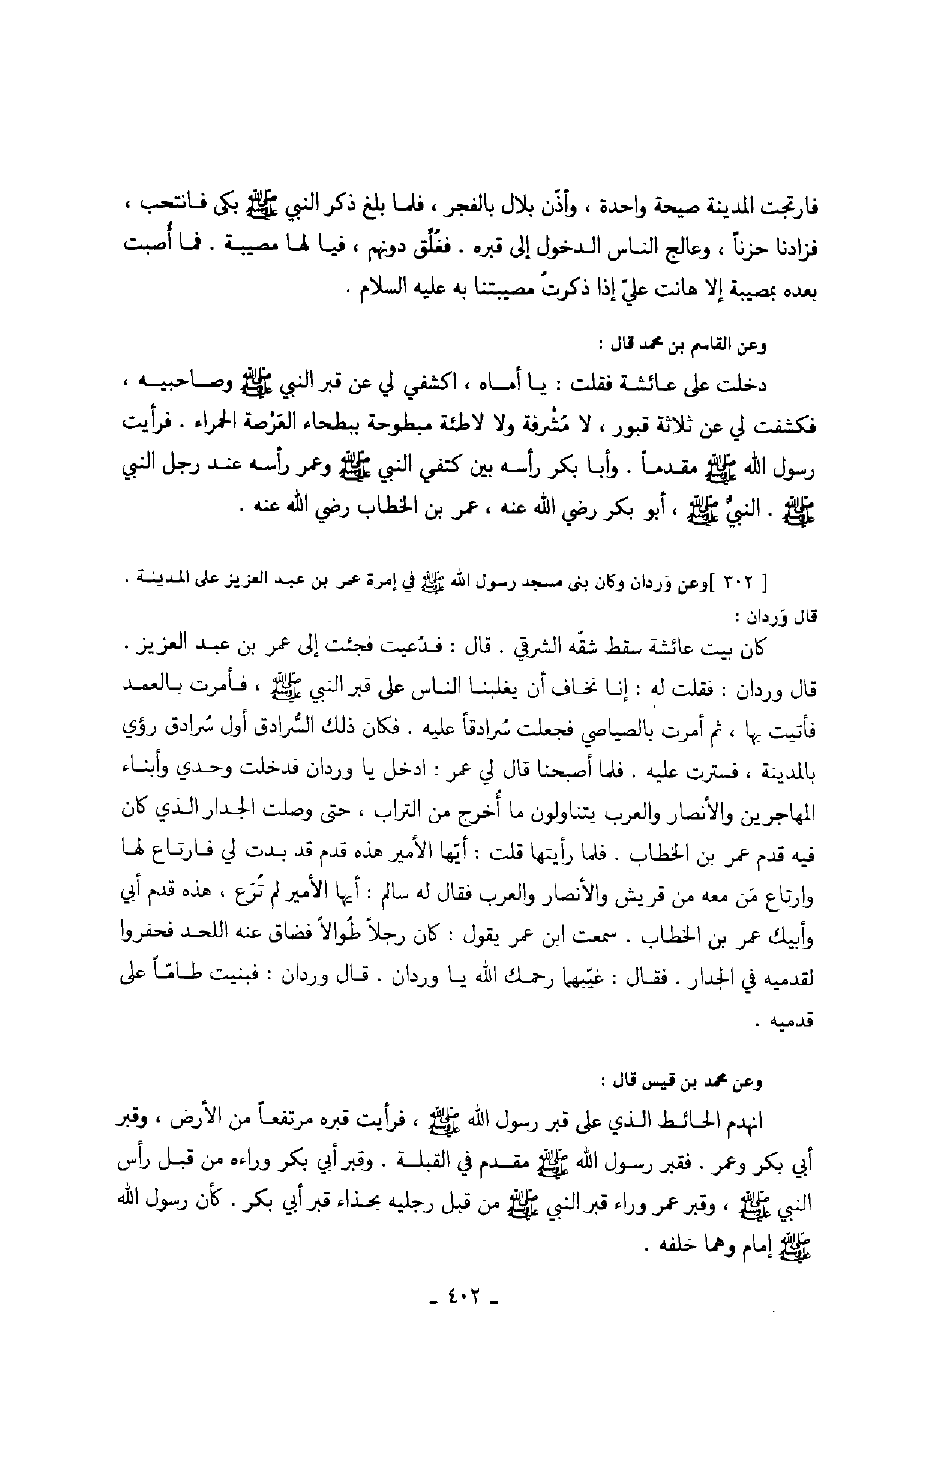 فارتجت المدينة صيحة واحدة ، وأذّن بلال بالفجر ، فلما بلغ ذكر النبي ﷺ بكى فانتحب ،
فزادنا حزناً ، وعالج الناس الدخول إلى قبره . فغُلّق دونهم ، فيا لها مصيبة . فما أُصبت
بعده بمصيبة إلا هانت عليّ إذا ذكرتُ مصيبتنا به عليه السلام .
وعن القاسم بن محمد قال :
دخلت على عائشة فقلت : يا أماه ، اكشفي لي عن قبر النبي ﷺ وصاحبيه ،
فكشفت لي عن ثلاثة قبور ، لا مُشْرِفة ولا لاطئة مبطوحة ببطحاء العَرْصة الحمراء . فرأيت
رسول الله ﷺ مقدماً . وأبا بكر رأسه بين كتفي النبي ﷺ وعمر رأسه عند رجل النبي
ﷺ . النبيُّ ﷺ ، أبو بكر رضي الله عنه ، عمر بن الخطاب رضي الله عنه .
[ ٣٠٢ ]وعن وَردان وكان بنى مسجد رسول الله ﷺ في إمرة عمر بن عبد العزيز على المدينة .
قال وَردان :
كان بيت عائشة سقط شقّه الشرقي . قال : فدُعيت فجئت إلى عمر بن عبد العزيز .
قال وردان : فقلت له : إنا نخاف أن يغلبنا الناس على قبر النبي ﷺ ، فأمرت بالعمد
فأتيت بها ، ثم أمرت بالصياصي فجعلت سُرادقاً عليه . فكان ذلك السُّرادق أول سُرادق رؤي
بالمدينة ، فسترت عليه . فلما أصبحنا قال لي عمر : ادخل يا وردان فدخلت وحدي وأبناء
المهاجرين والأنصار والعرب يتناولون ما أُخرج من التراب ، حتى وصلت الجدار الذي كان
فيه قدم عمر بن الخطاب . فلما رأيتها قلت : أيّها الأمير هذه قدم قد بدت لي فارتاع لها
وارتاع مَن معه من قريش والأنصار والعرب فقال له سالم : أيها الأمير لم تُرَع ، هذه قدم أبي
وأبيك عمر بن الخطاب . سمعت ابن عمر يقول : كان رجلاً طُوالاً فضاق عنه اللحد فحفروا
لقدميه في الجدار . فقال : غيّبها رحمك الله يا وردان . قال وردان : فبنيت طاقاً على
قدميه .
وعن محمد بن قيس قال :
انهدم الحائط الذي على قبر رسول الله ﷺ ، فرأيت قبره مرتفعاً من الأرض ، وقبر
أبي بكر وعمر . فقبر رسول الله ﷺ مقدم في القبلة . وقبر أبي بكر وراءه من قبل رأس
النبي ﷺ ، وقبر عمر وراء قبر النبي ﷺ من قبل رجليه بحذاء قبر أبي بكر . كأن رسول الله
ﷺ إمام وهما خلفه .
ـ ٤٠٢ ـ